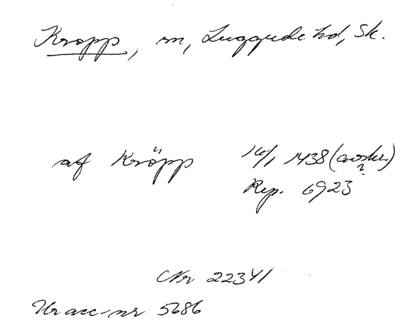 Kropp, sn, Luggude hd, Sk.
af Kröpp 14/1 1438 (avskr.)
?
Rep. 6923
Nr 22341
Ur acc-nr 5686